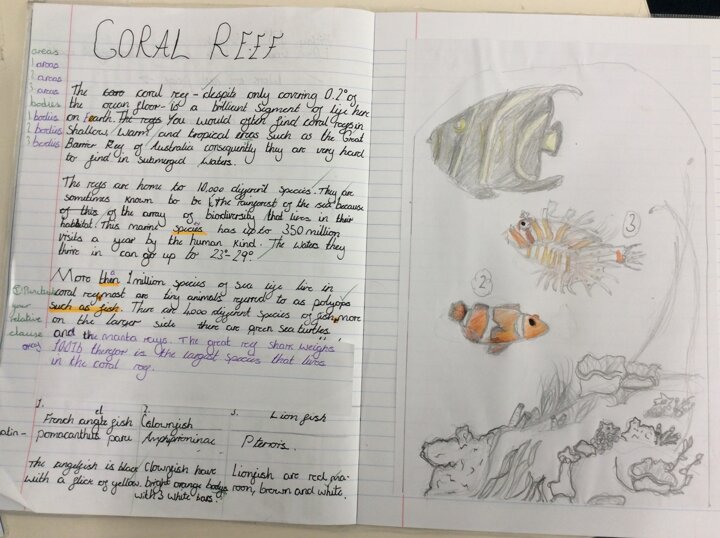 CORAL REEF
areas
1 areas
2 areas
3 areas
bodies
1 bodies
2 bodies
3 bodies
The coral reef - despite only covering 0.2% of
the ocean floor - is a brilliant segment of life here
on Earth. The reefs You would often find coral reefs in
Shallow, warm and tropical areas such as the Great
Barrier Reef of Australia consequently they are very hard
to find in submerged waters.
The reefs are home to 10,000 different species. They are
sometimes known to be the rainforest of the sea because
of this of the array of biodiversity that lives in their
habitat. This marine species has up to 350 million
visits a year by the human kind. The waters they
thrive in can go up to 23°-29°.
More than 1 million species of sea life live in
coral reef, most are tiny animals referred to as polyps
such as fish. There are 4,000 different species of fish, more
on the larger side there are green Sea turtles
and the manta rays. The great reef shark weighs
100lb therefor is the largest species that lives
in the coral reef.
① Punctuate
your
relative
clause
1. 2. 3.
French angle fish el Clownfish Lion fish
Latin - pomacanthus paru Amphiprioninae Pterois.
The angelfish is black Clownfish have Lionfish are red, ma-
with a flick of yellow. bright orange bodys room, brown and white.
with 3 white bars.
3
2